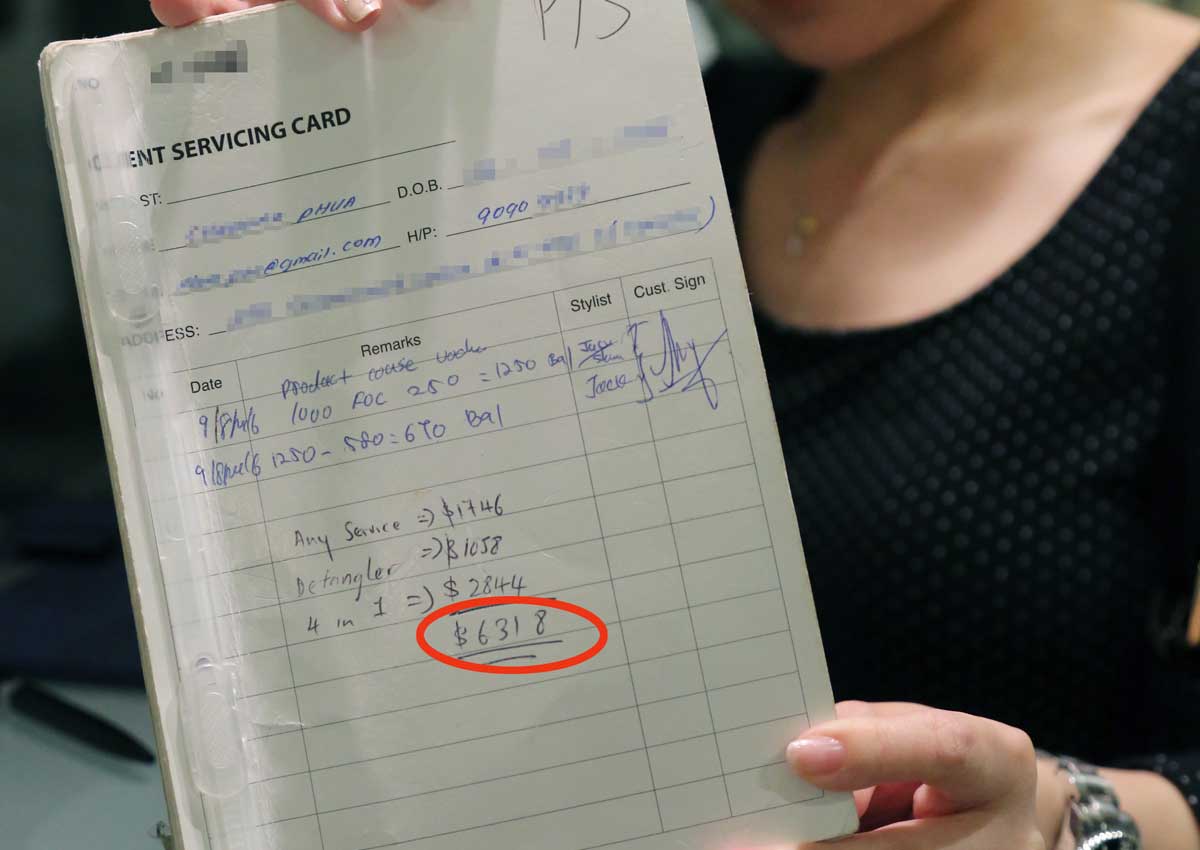 P/S
NO
ENT SERVICING CARD
ST:
D.O.B.
PHUA
H/P: 9090
@gmail.com
ADDRESS:
Date Remarks Stylist Cust. Sign
Product
1000 FOC 250 = 1250 Bal
1250 - 580 = 670 Bal
Any Service => $1746
Detangler => $1058
4 in 1 => $2844
$6318